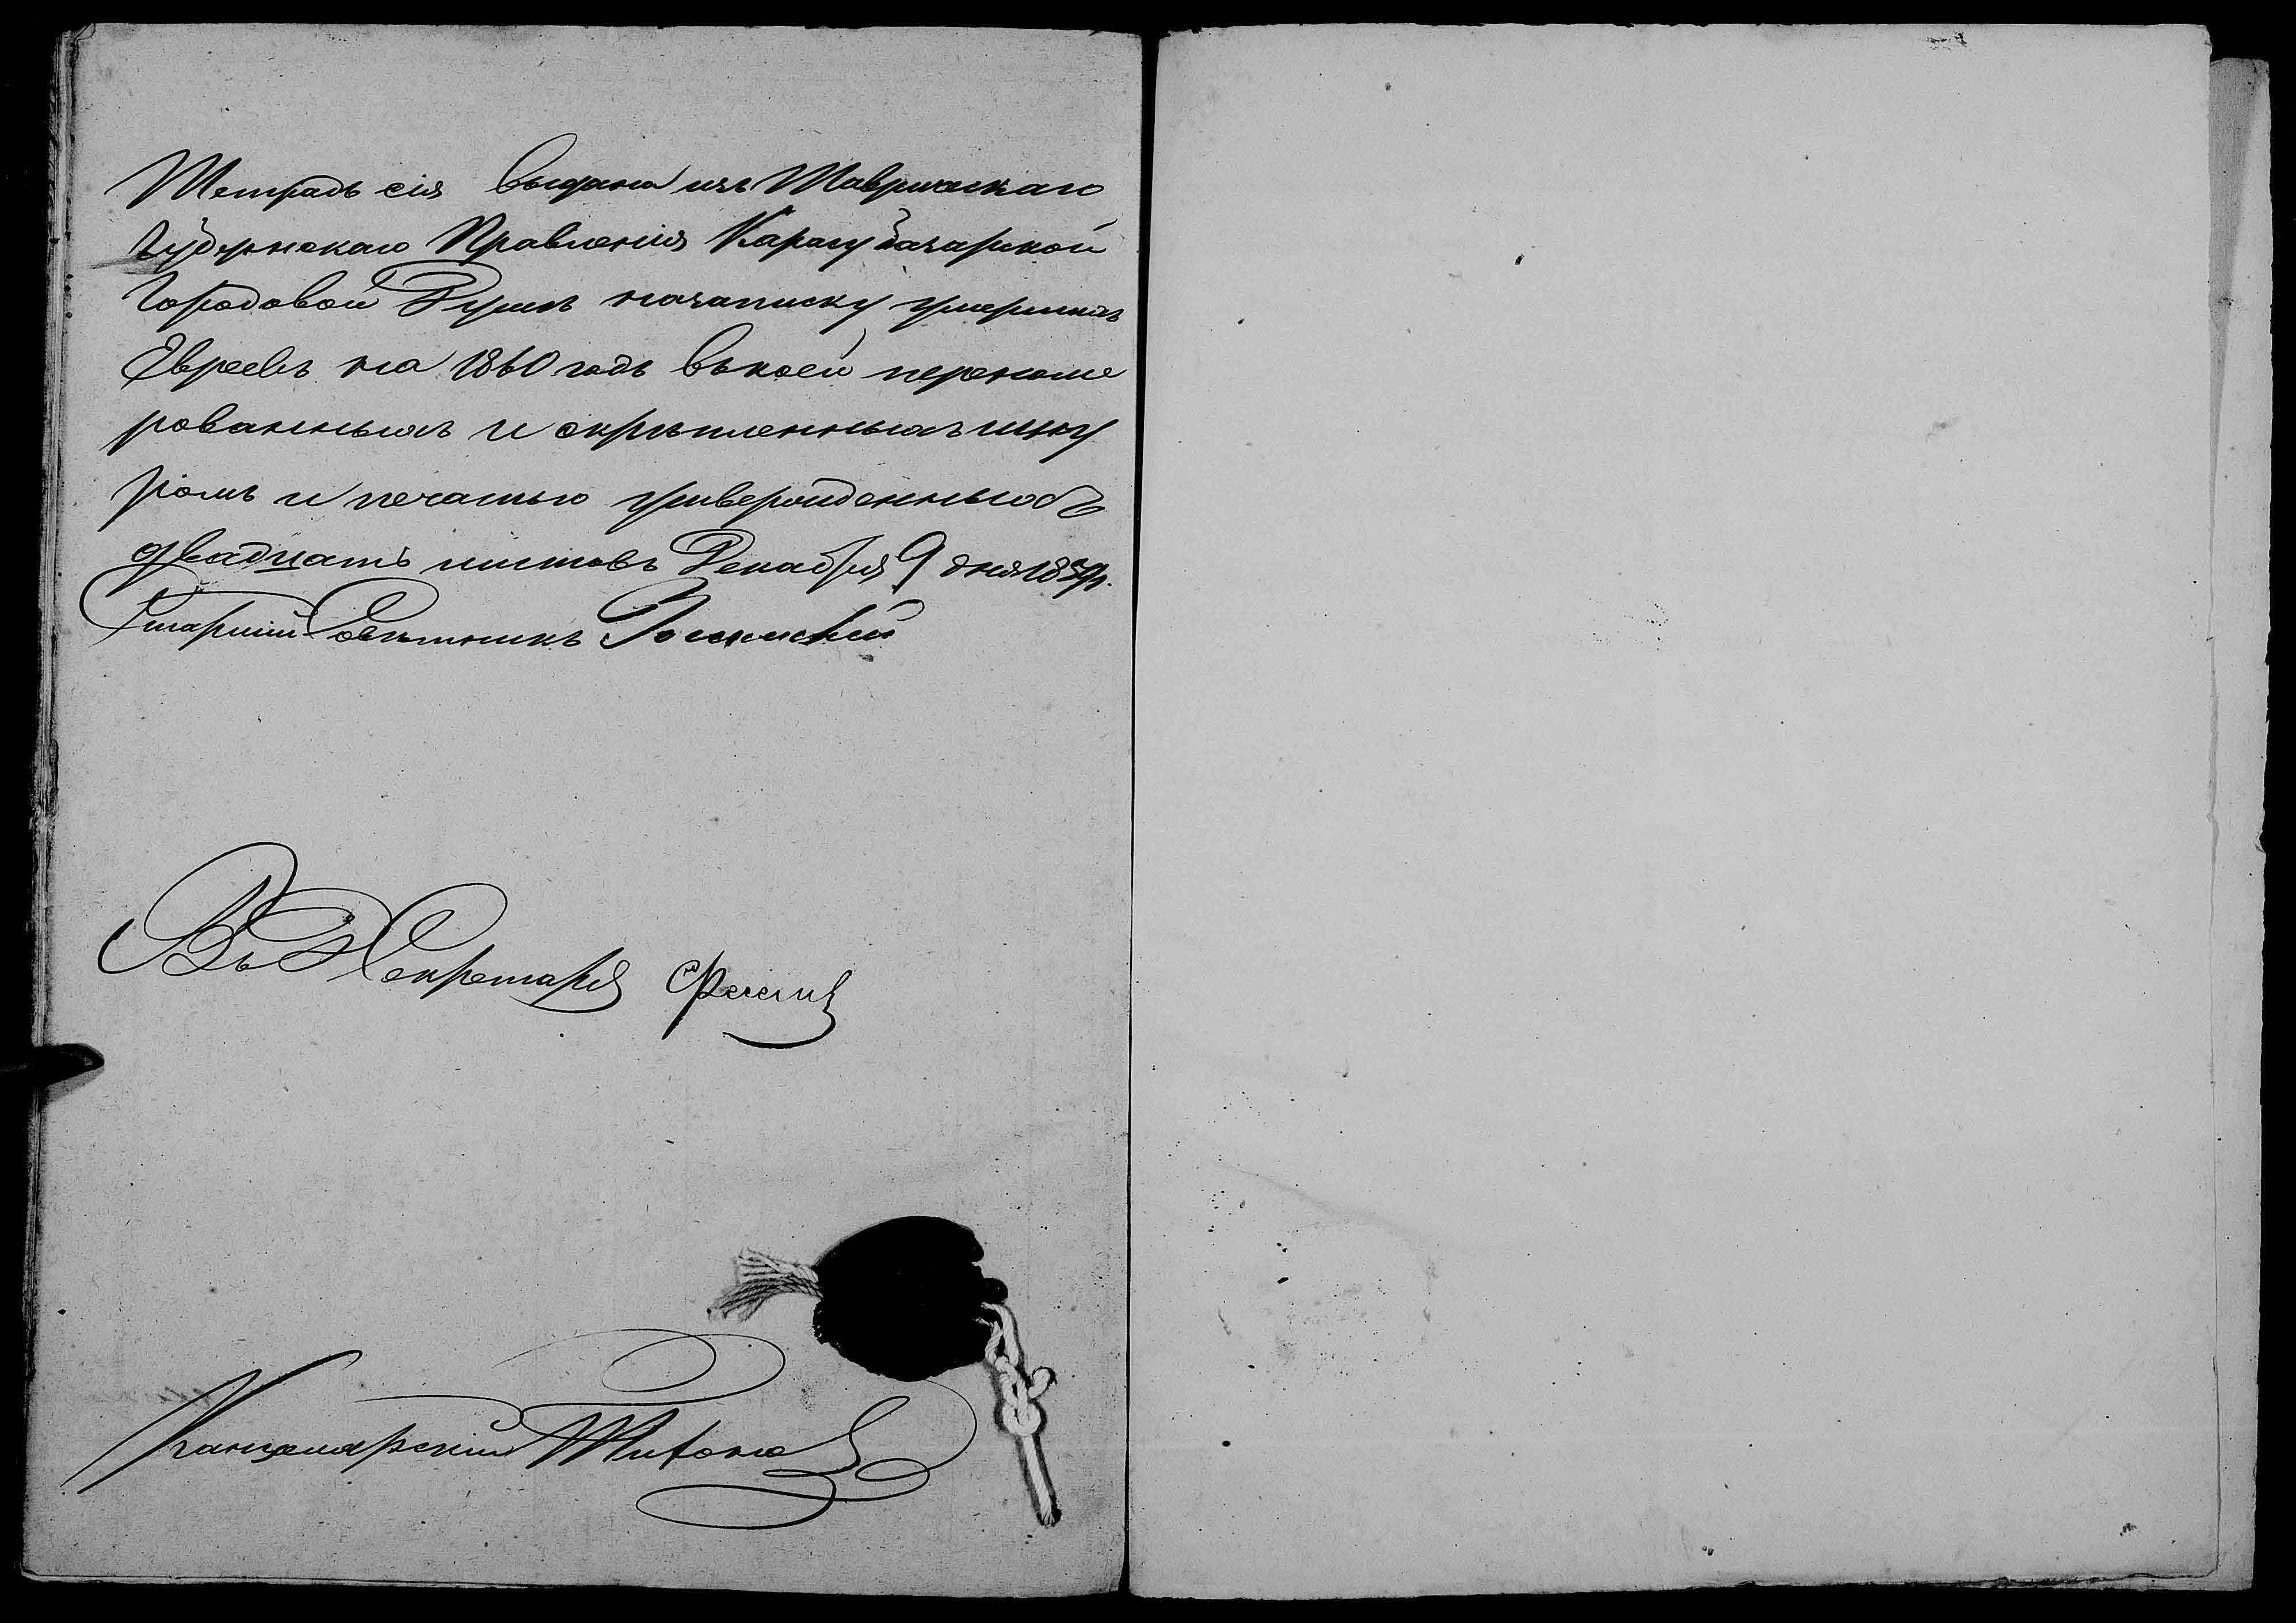 Тетрадь сія выдана изъ Таврическаго
Губернскаго Правленія Карасубазарской
Городовой Думѣ на записку умершихъ
Евреевъ на 1860 годъ въ коей переноме
рованныхъ и скрѣпленныхъ шну
ромъ и печатью утвержденныхъ
двадцать листовъ Декабря 9 дня 1859 г.
Старшій Совѣтникъ
Въ Д Секретаря
Канцелярскій